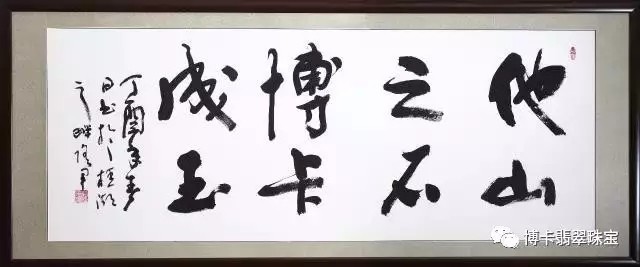 他山
之石
博卡
成玉
丁酉年春
日书於湖
之畔
博卡翡翠珠宝